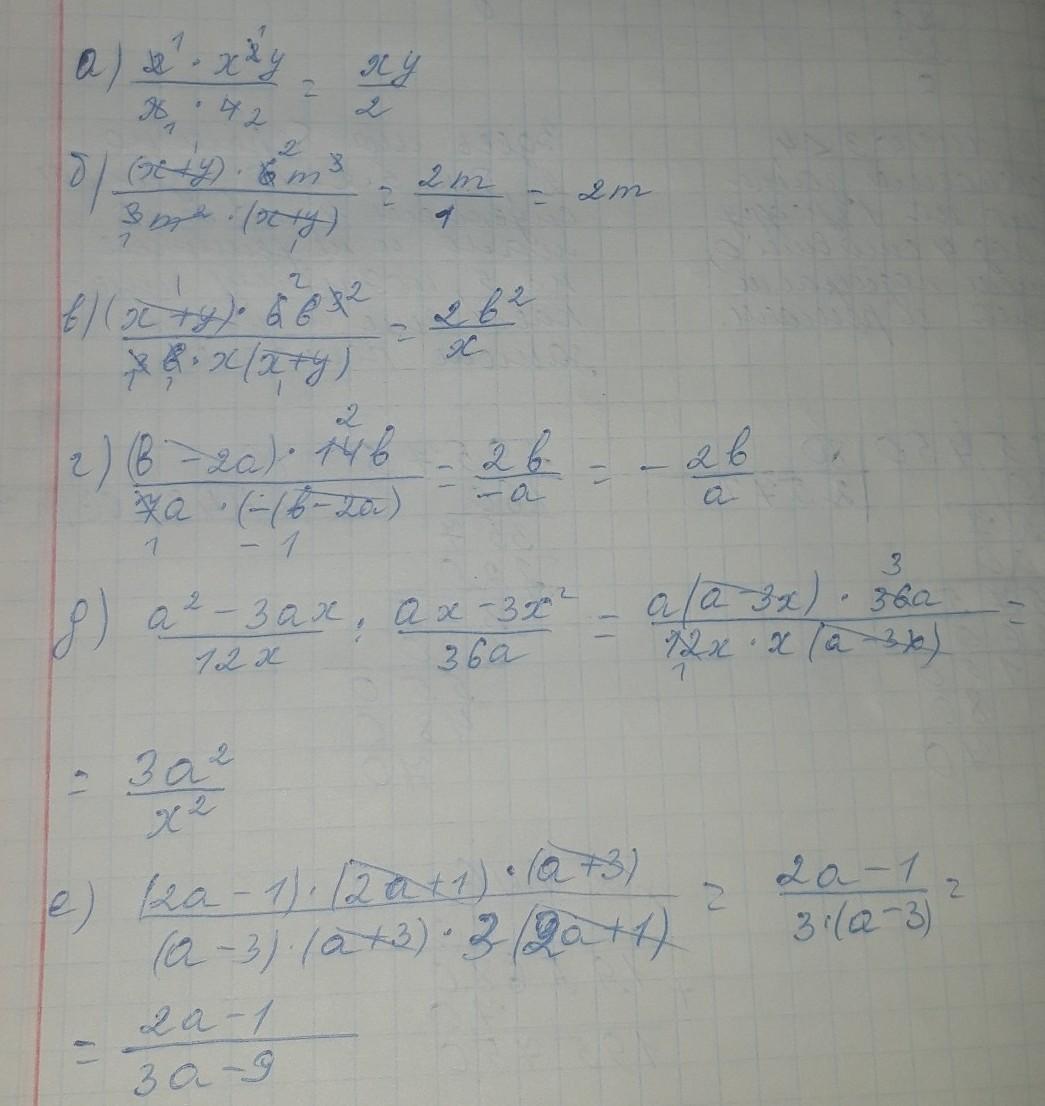 а) (2 · x²y)/(x · 4) = xy/2
б) ((x+y) · 6m³)/(3m² · (x+y)) = 2m/1 = 2m
в) ((x+y) · 6b³)/(3b · x(x+y)) = 2b²/x
г) ((b-2a) · 14b)/(7a · (-(b-2a)) = 2b/-a = - 2b/a
д) (a²-3ax)/12x : (ax-3x²)/36a = (a(a-3x) · 36a)/(12x · x(a-3x)) =
= 3a²/x²
е) ((2a-1)·(2a+1)·(a+3))/((a-3)·(a+3)·3(2a+1)) = (2a-1)/(3·(a-3)) =
= (2a-1)/(3a-9)